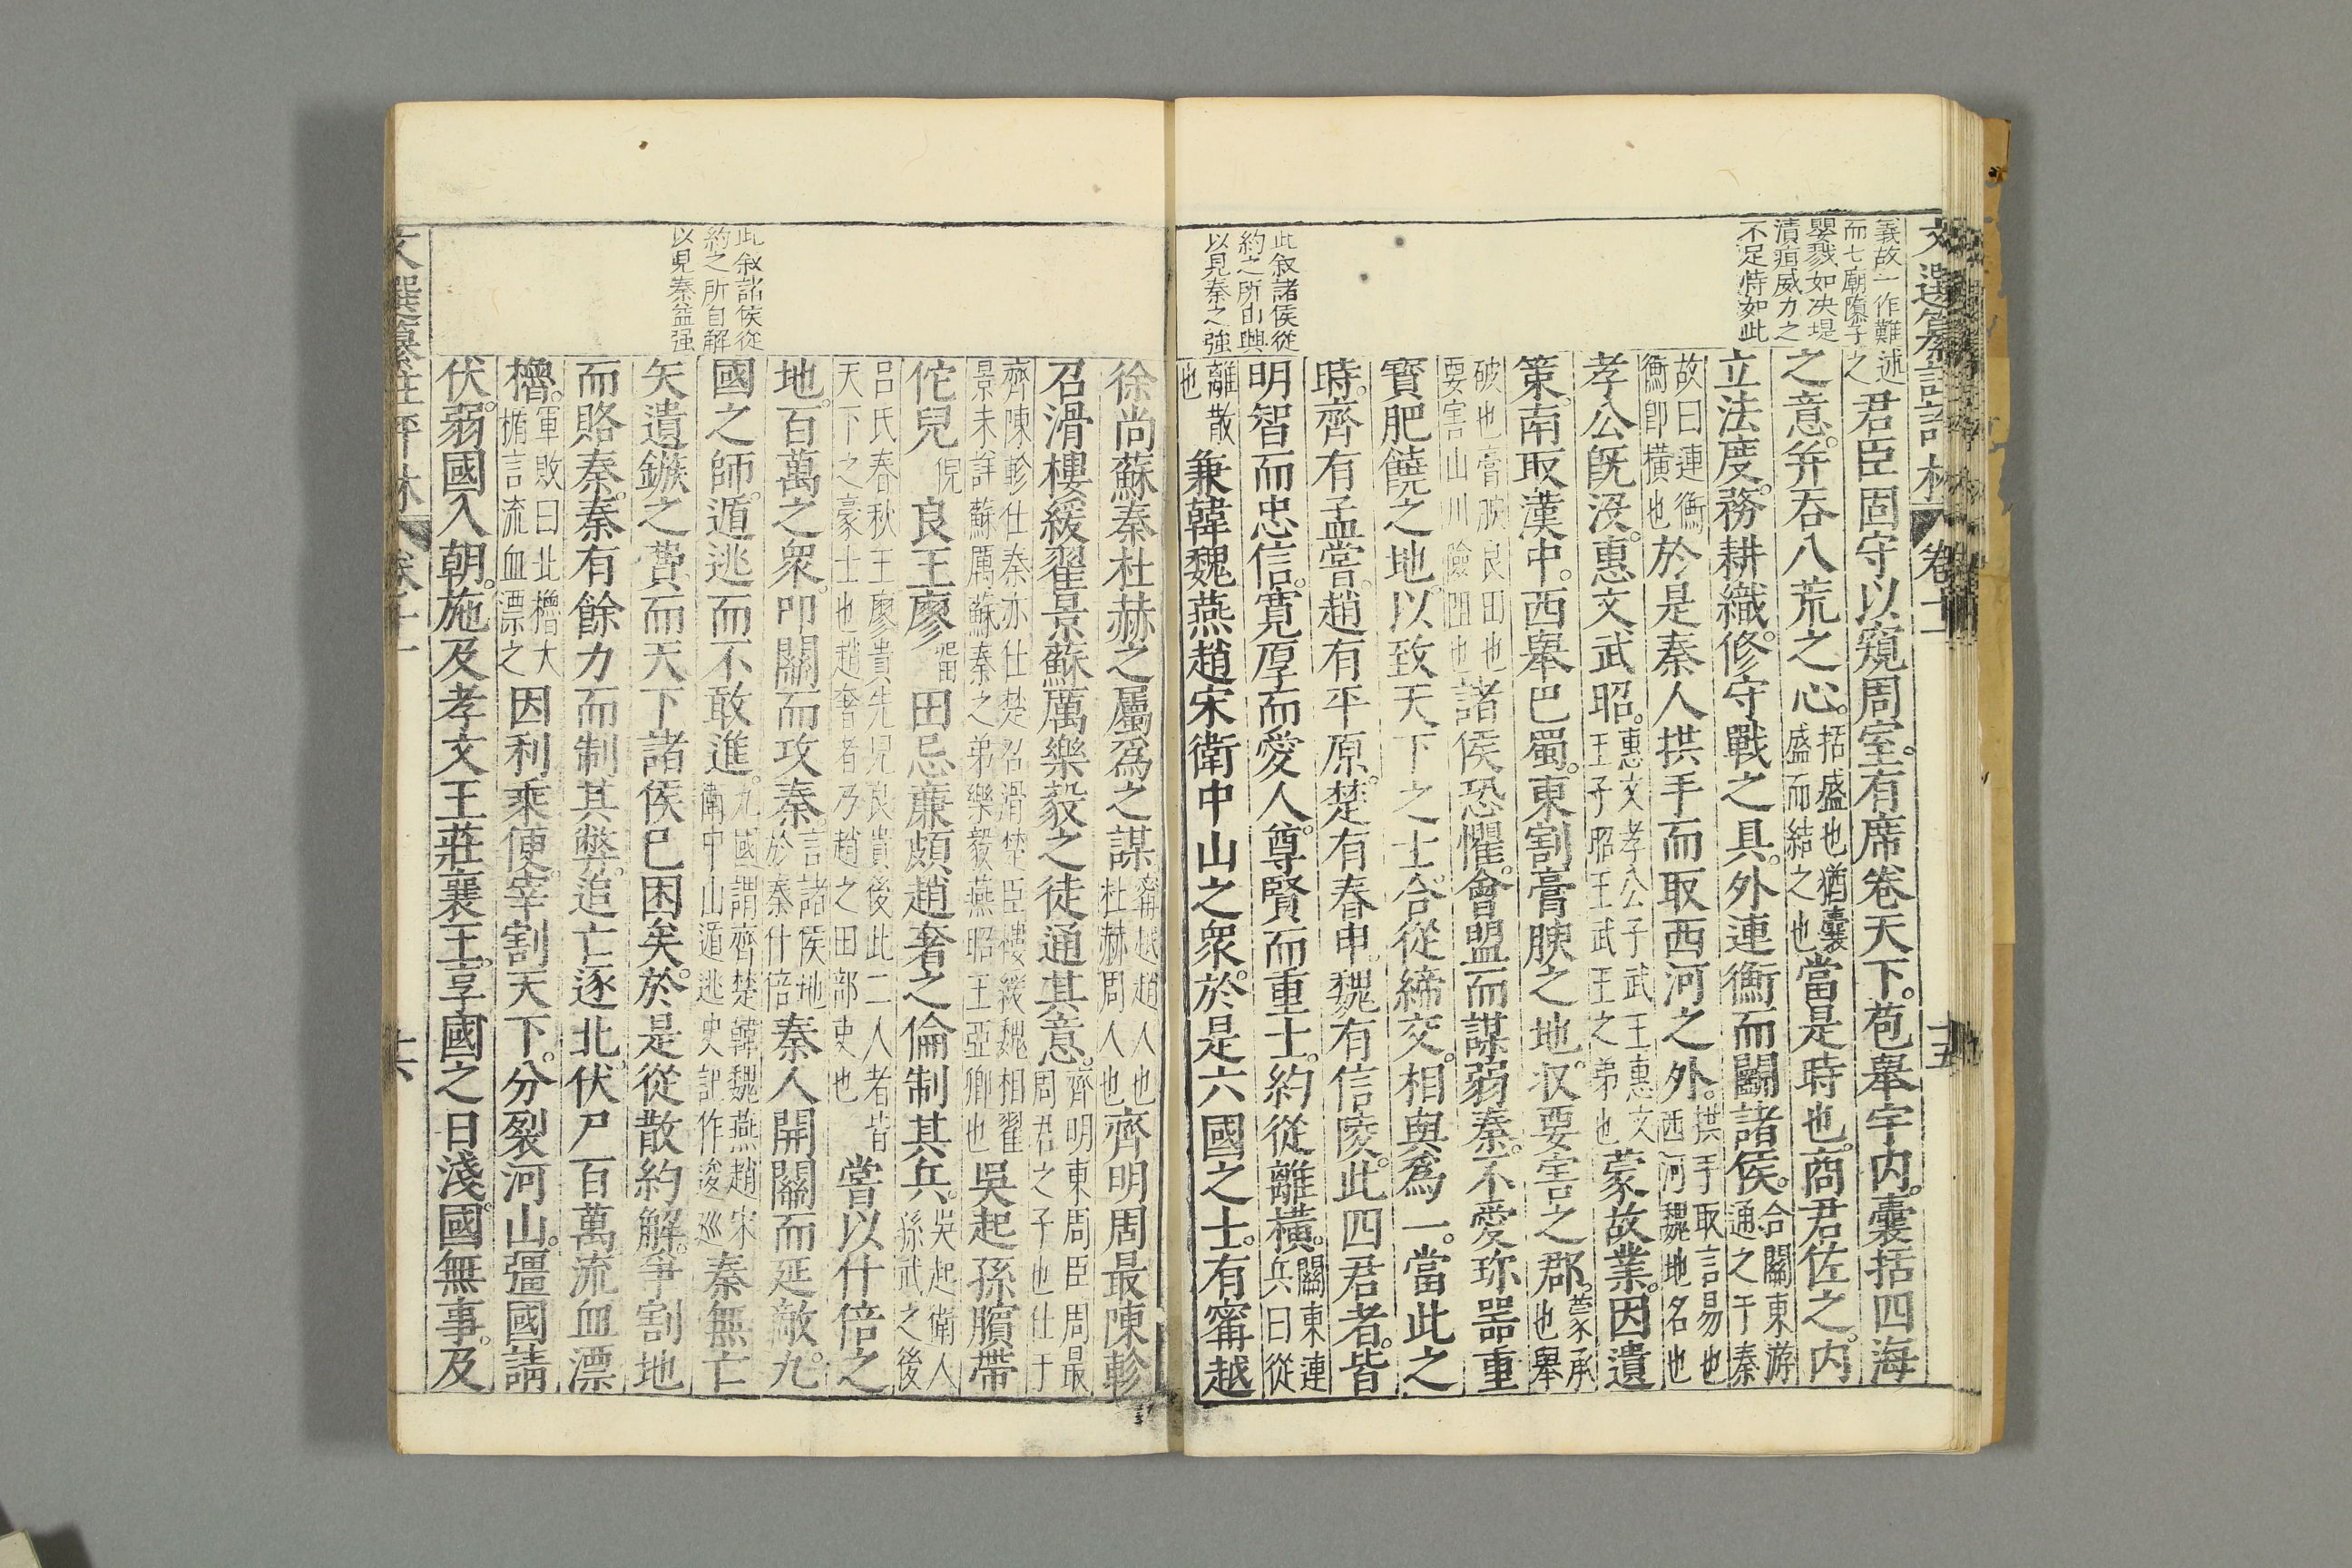 文選纂註評林 卷十一 十五
義故一作難述
而七廟隳子之
嬰戮如决堤
潰疽威力之
不足恃如此
君臣固守以窺周室。有席卷天下。苞舉宇内。囊括四海
之意。并吞八荒之心。括盛也猶囊盛而結之也當是時也。商君佐之。内
立法度。務耕織。修守戰之具。外連衡而鬭諸侯。合關東游通之于秦
故曰連衡衡卽橫也於是秦人拱手而取西河之外。拱手取言易也西河魏地名也
孝公旣沒。惠文武昭。惠文孝公子武王惠文王子昭王武王之弟也蒙故業。因遺
策。南取漢中。西舉巴蜀。東割膏腴之地。収要害之郡。蒙承也舉
破也膏腴良田也要害山川險阻也諸侯恐懼。會盟而謀弱秦。不愛珎噐重
寳肥饒之地。以致天下之士。合從締交。相與爲一。當此之
時。齊有孟嘗。趙有平原。楚有春申。魏有信陵。此四君者。皆
明智而忠信。寛厚而愛人。尊賢而重士。約從離橫。關東連兵曰從
離散也兼韓魏燕趙宋衛中山之衆。於是六國之士。有甯越
此叙諸侯從
約之所由興
以見秦之強
徐尚蘇秦杜赫之屬爲之謀甯越趙人也杜赫周人也齊明周最陳軫
召滑樓緩翟景蘇厲樂毅之徒通其意。齊明東周臣周最周君之子也仕于
齊陳軫仕秦亦仕楚召滑楚臣樓緩魏相翟景未詳蘇厲蘇秦之弟樂毅燕昭王亞卿也吳起孫臏帶
佗兒倪良王廖留田忌廉頗趙奢之倫制其兵。吳起衛人孫武之後
呂氏春秋王廖貴先兒良貴後此二人者皆天下之豪士也趙奢者乃趙之田部吏也嘗以什倍之
地。百萬之衆。叩關而攻秦。言諸侯地於秦什倍秦人開關而延敵。九
國之師。遁逃而不敢進。九國謂齊楚韓魏燕趙宋衛中山遁逃史記作逡巡秦無亡
矢遺鏃之費而天下諸侯已困矣。於是從散約解。爭割地
而賂秦。秦有餘力而制其弊。追亡逐北伏尸百萬流血漂
櫓。軍敗曰北櫓大楯言流血漂之因利乘便。宰割天下。分裂河山。彊國請
伏。弱國入朝。施及孝文王莊襄王。享國之日淺。國無事。及
此叙諸侯從
約之所自解
以見秦益强
文選纂註評林 卷十一 十六